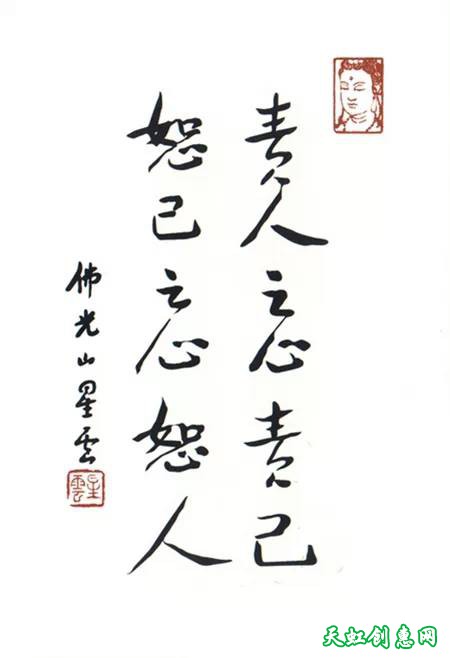 責人之心責己
恕己之心恕人
佛光山星雲
星雲
天虹创意网